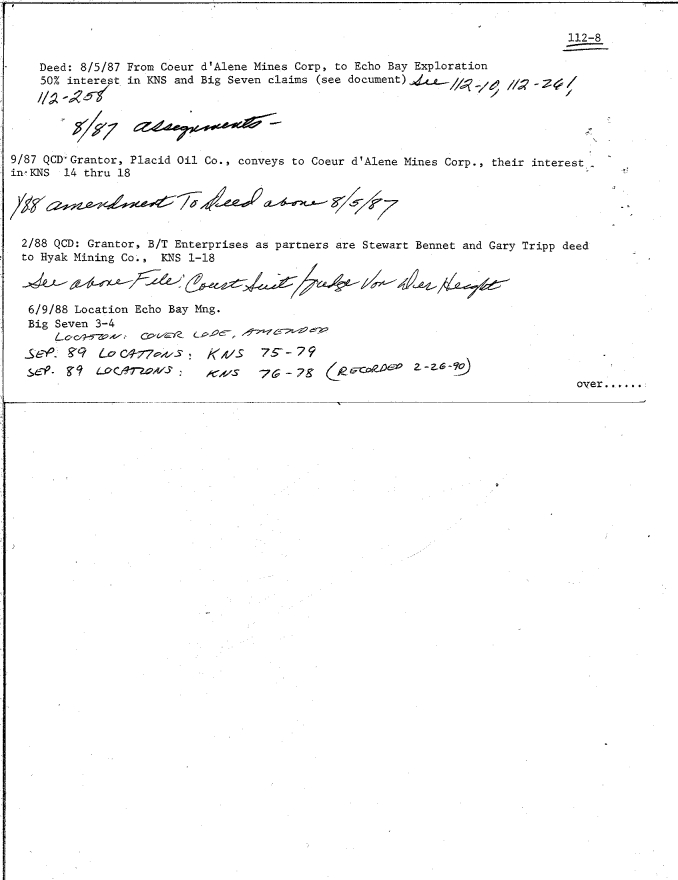 112-8
Deed: 8/5/87 From Coeur d'Alene Mines Corp, to Echo Bay Exploration
50% interest in KNS and Big Seven claims (see document) See 112-10, 112-261,
112-258
8/87 assignments -
9/87 QCD Grantor, Placid Oil Co., conveys to Coeur d'Alene Mines Corp., their interest
in KNS 14 thru 18
/88 amendment To Deed above 8/5/87
2/88 QCD: Grantor, B/T Enterprises as partners are Stewart Bennet and Gary Tripp deed
to Hyak Mining Co., KNS 1-18
See above File: Court Suit/Judge Von Der Height
6/9/88 Location Echo Bay Mng.
Big Seven 3-4
LOCATION: COVER LODE, AMENDED
SEP. 89 LOCATIONS: KNS 75-79
SEP. 89 LOCATIONS: KNS 76-78 (RECORDED 2-26-90)
over......